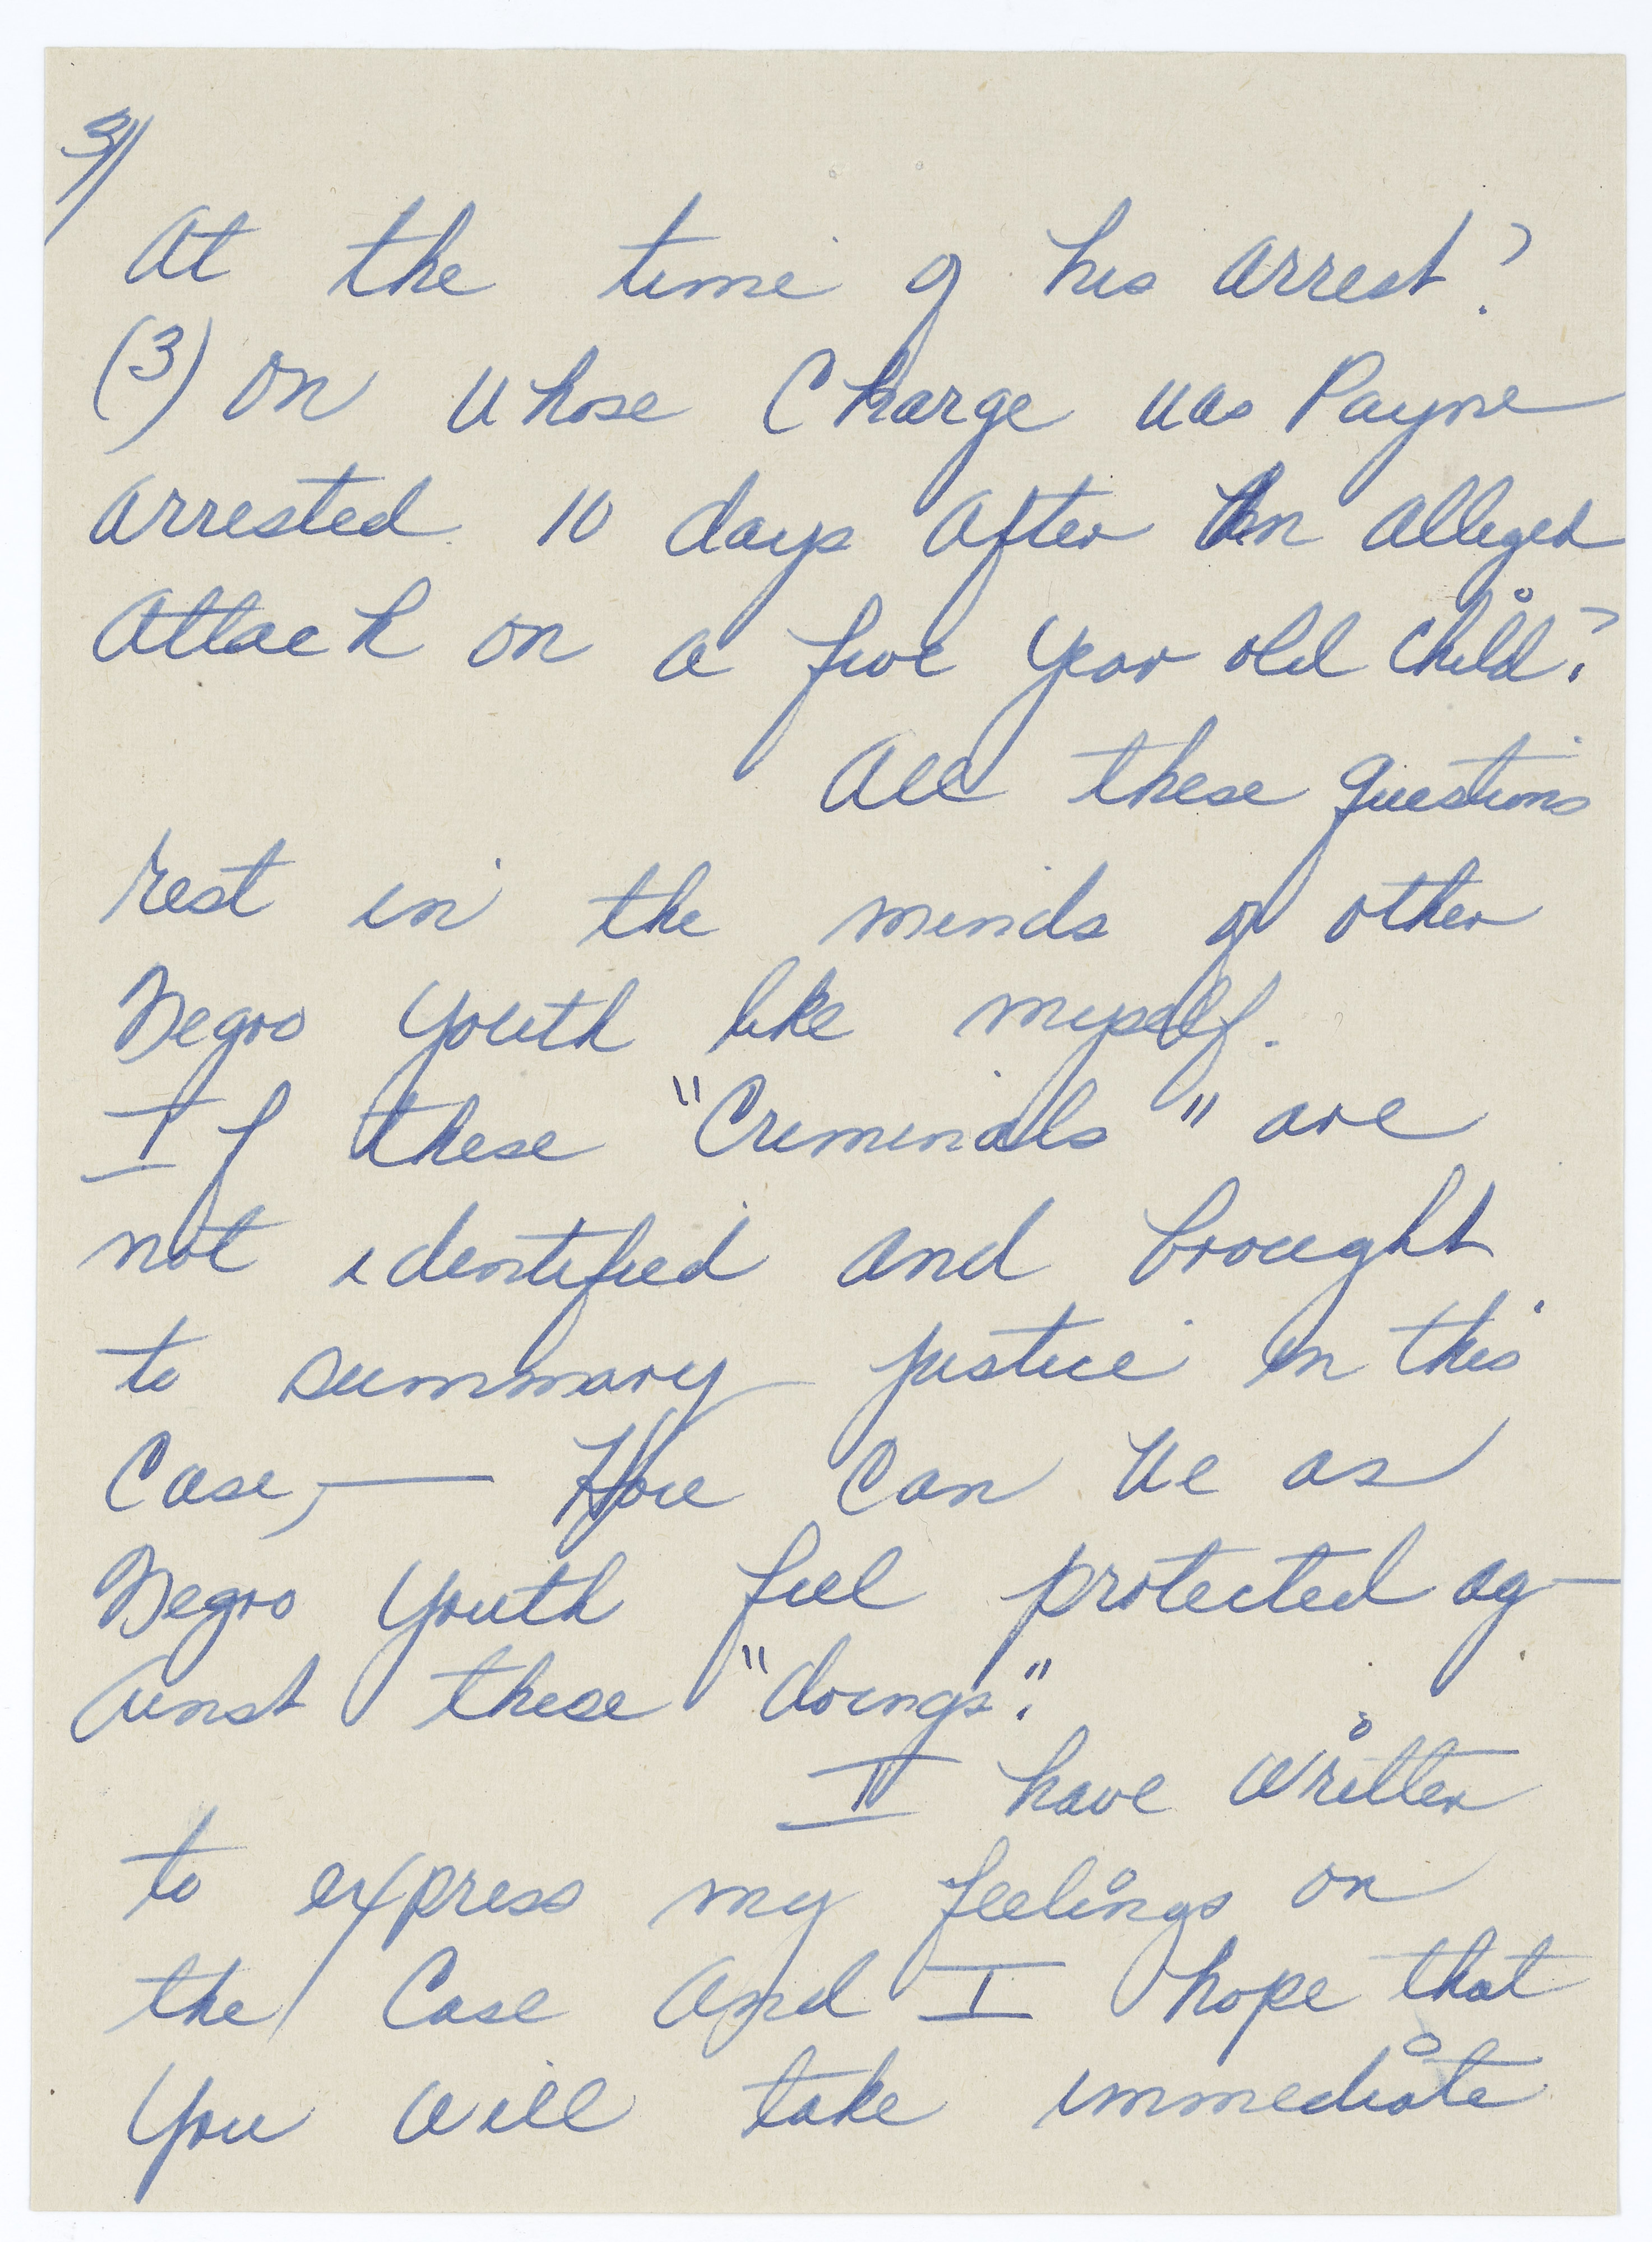 3//
At the time of his arrest?
(3) On whose Charge was Payne
Arrested 10 days After An Alleged
Attack on a five year old Child?
All these questions
rest in the minds of other
Negro Youth like myself.
If these "Criminals" are
not identified and brought
to summary justice in this
Case, — How can we as
Negro Youth feel protected ag-
ainst these "doings".
I have written
to express my feelings on
the Case And I hope that
You will take immediate